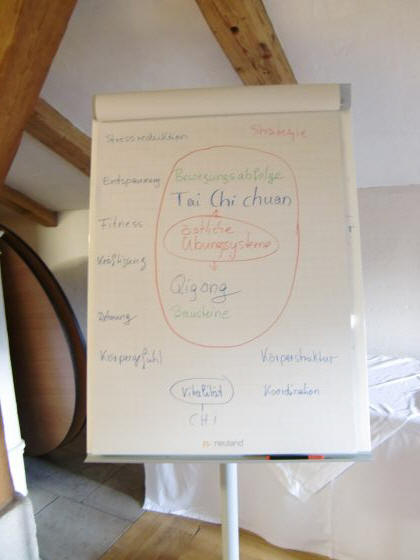 Stressreduktion
Strategie
Entspannung
Bewegungsabfolge
Tai Chi chuan
Fitness
östliche
Übungssysteme
Kräftigung
Qigong
Bausteine
Dehnung
Körpergefühl
Körperstruktur
Vitalität
Koordination
CHI
neuland